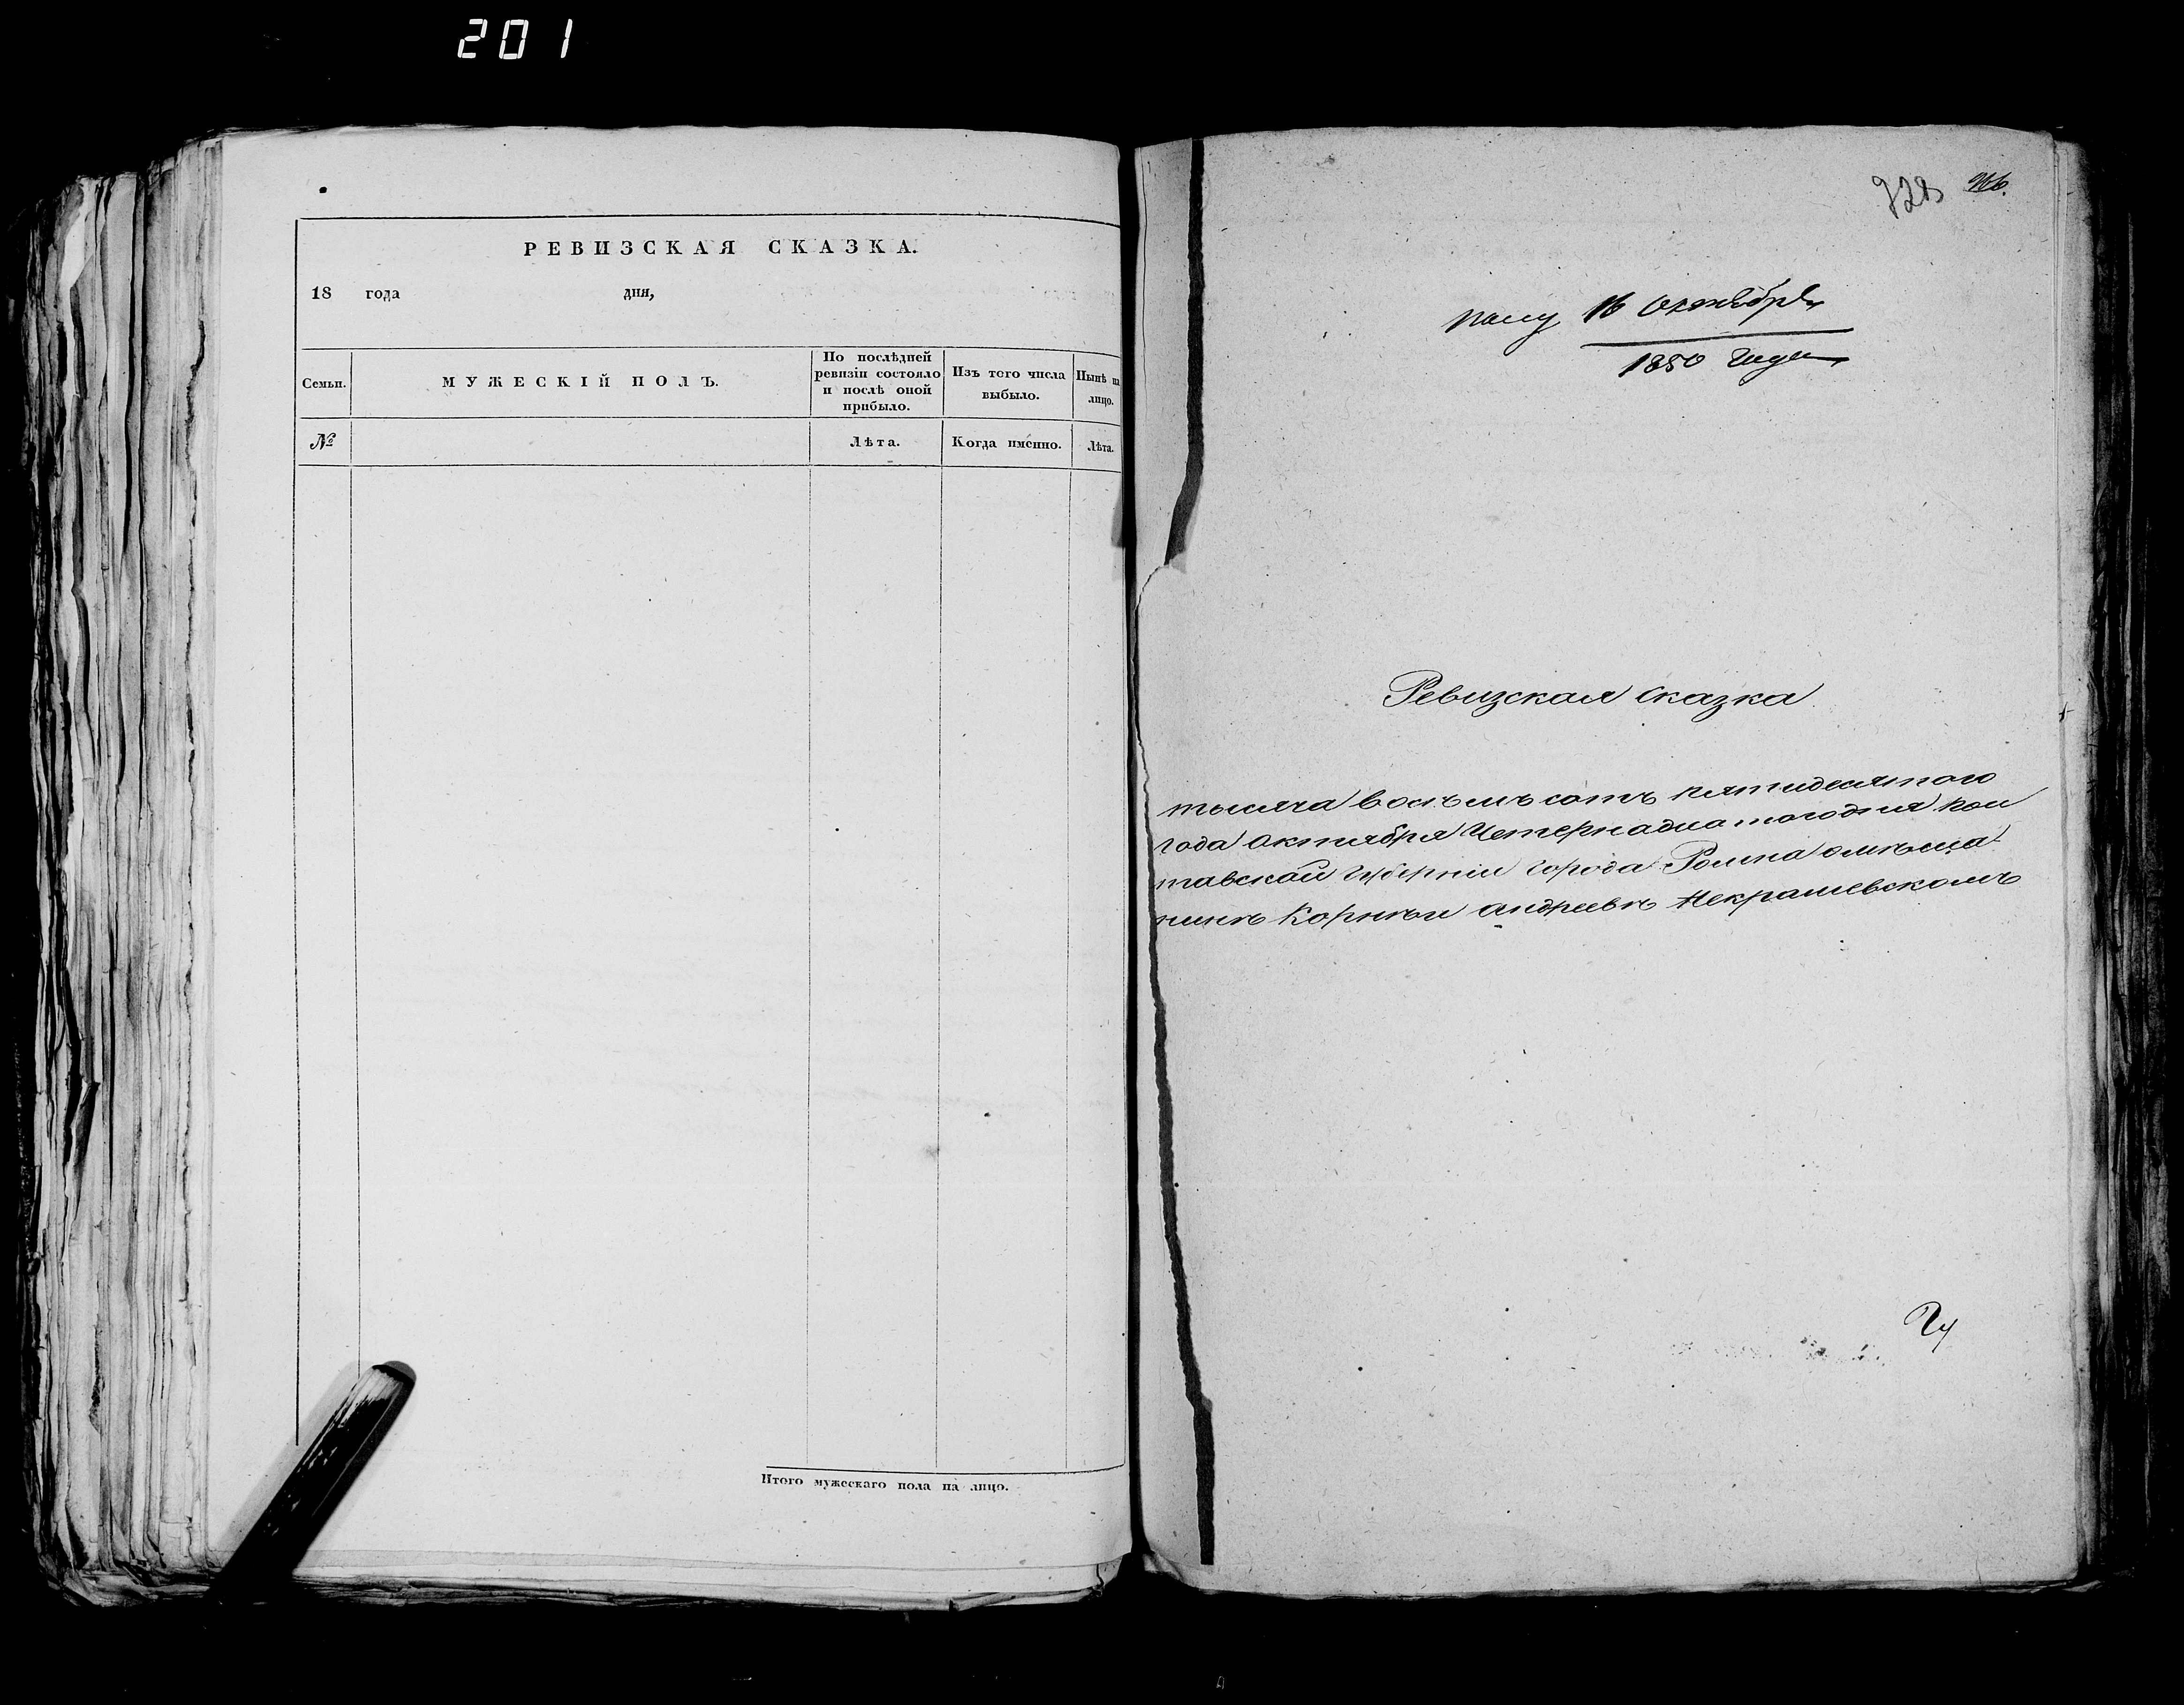 201
РЕВИЗСКАЯ СКАЗКА.
18 года дня,
Семьи.
МУЖЕСКІЙ ПОЛЪ.
По послѣдней
ревизіи состояло
и послѣ оной
прибыло.
Изъ того числа
выбыло.
Нынѣ на
лицо.
№
Лѣта.
Когда именно.
Лѣта.
Итого мужескаго пола на лицо.
16 октября
1850 года
Ревизская сказка
тысяча восъемъ сотъ пятидесятого
года октября Четернадцатогодня пол
тавской губернии города Ромна омѣща
нинѣ Корнѣи андреевѣ Некрашевскомъ